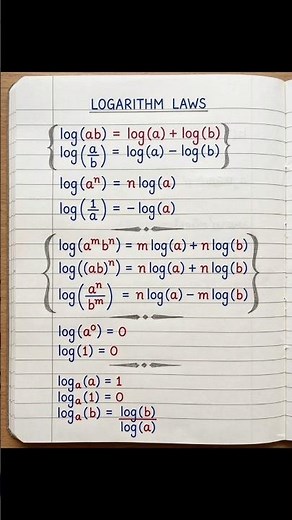 LOGARITHM LAWS
log(ab) = log(a) + log(b)
log(a/b) = log(a) − log(b)
log(aⁿ) = n log(a)
log(1/a) = −log(a)
log(aᵐbⁿ) = m log(a) + n log(b)
log((ab)ⁿ) = n log(a) + n log(b)
log(aⁿ/bᵐ) = n log(a) − m log(b)
log(a⁰) = 0
log(1) = 0
logₐ(a) = 1
logₐ(1) = 0
logₐ(b) = log(b)/log(a)